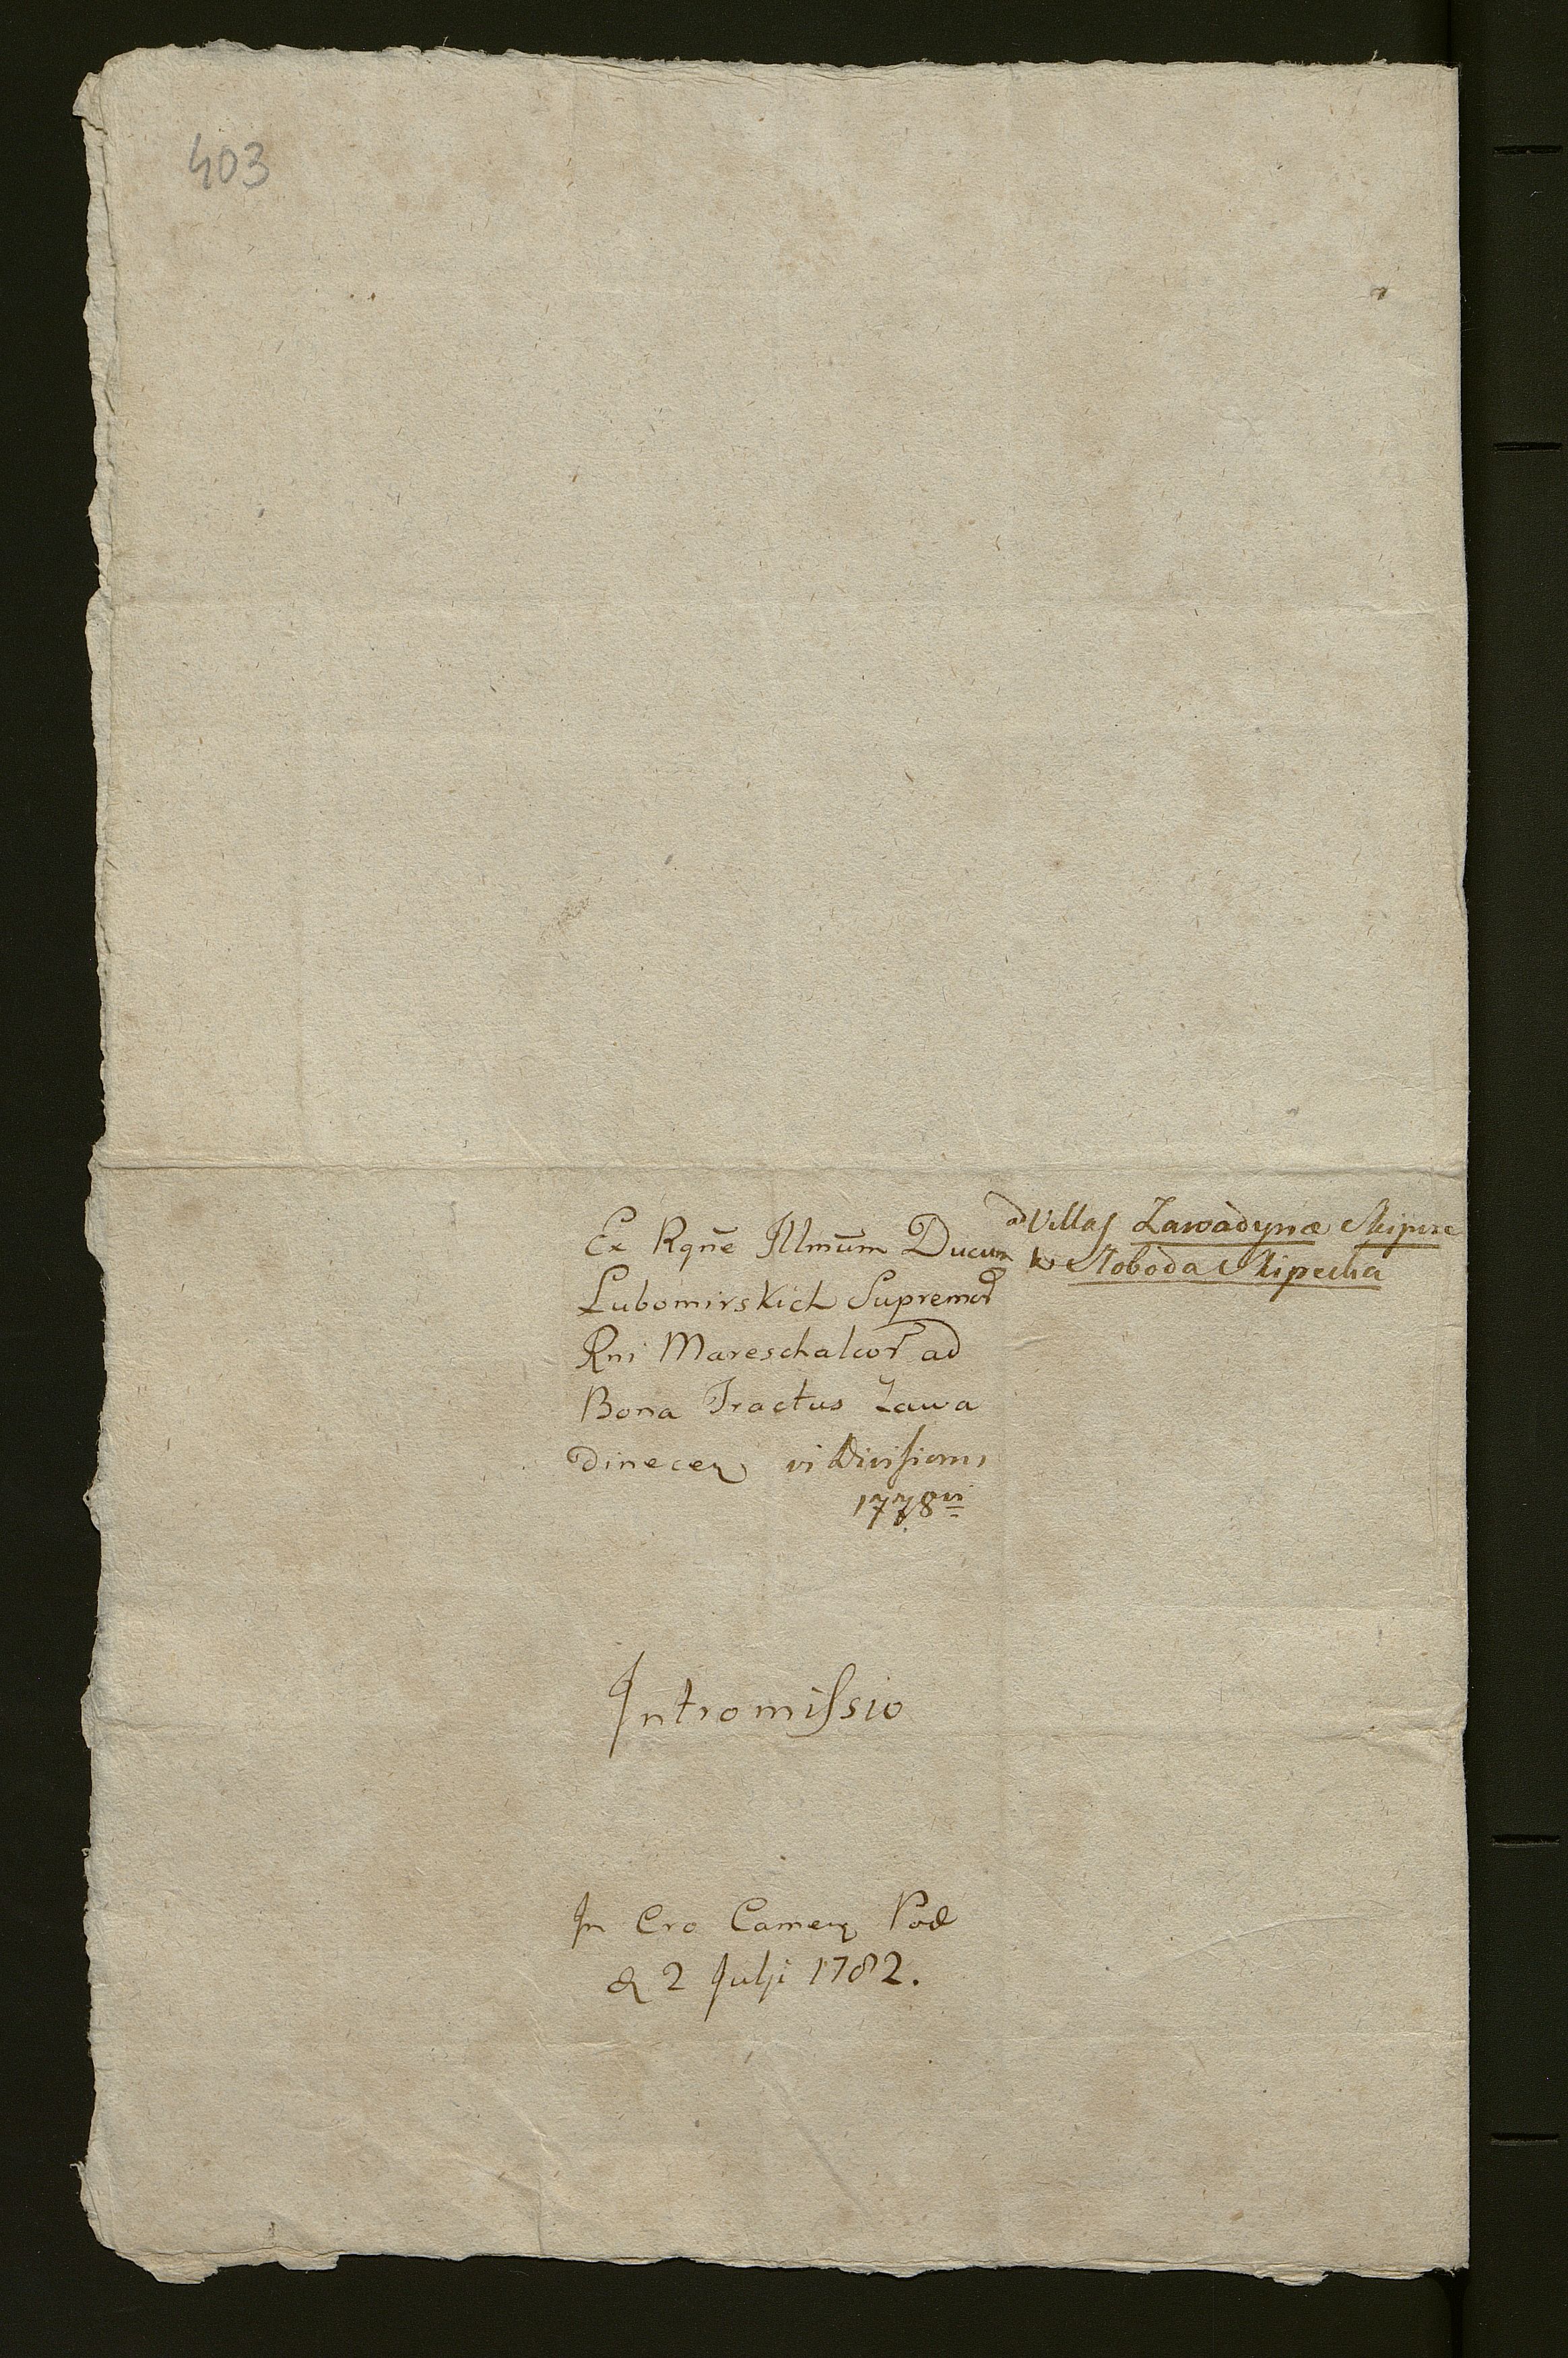 403
Ex Rqñe Illmũm Ducum
Lubomirskich Supremor
Rni Mareschalcor ad
Bona Tractus Zawa
dinecen vi Divisionis
1778vi
ad Villas Zawadynce
Sloboda
Intromissio
In Cro Camen Pod
d 2 Julji 1782.